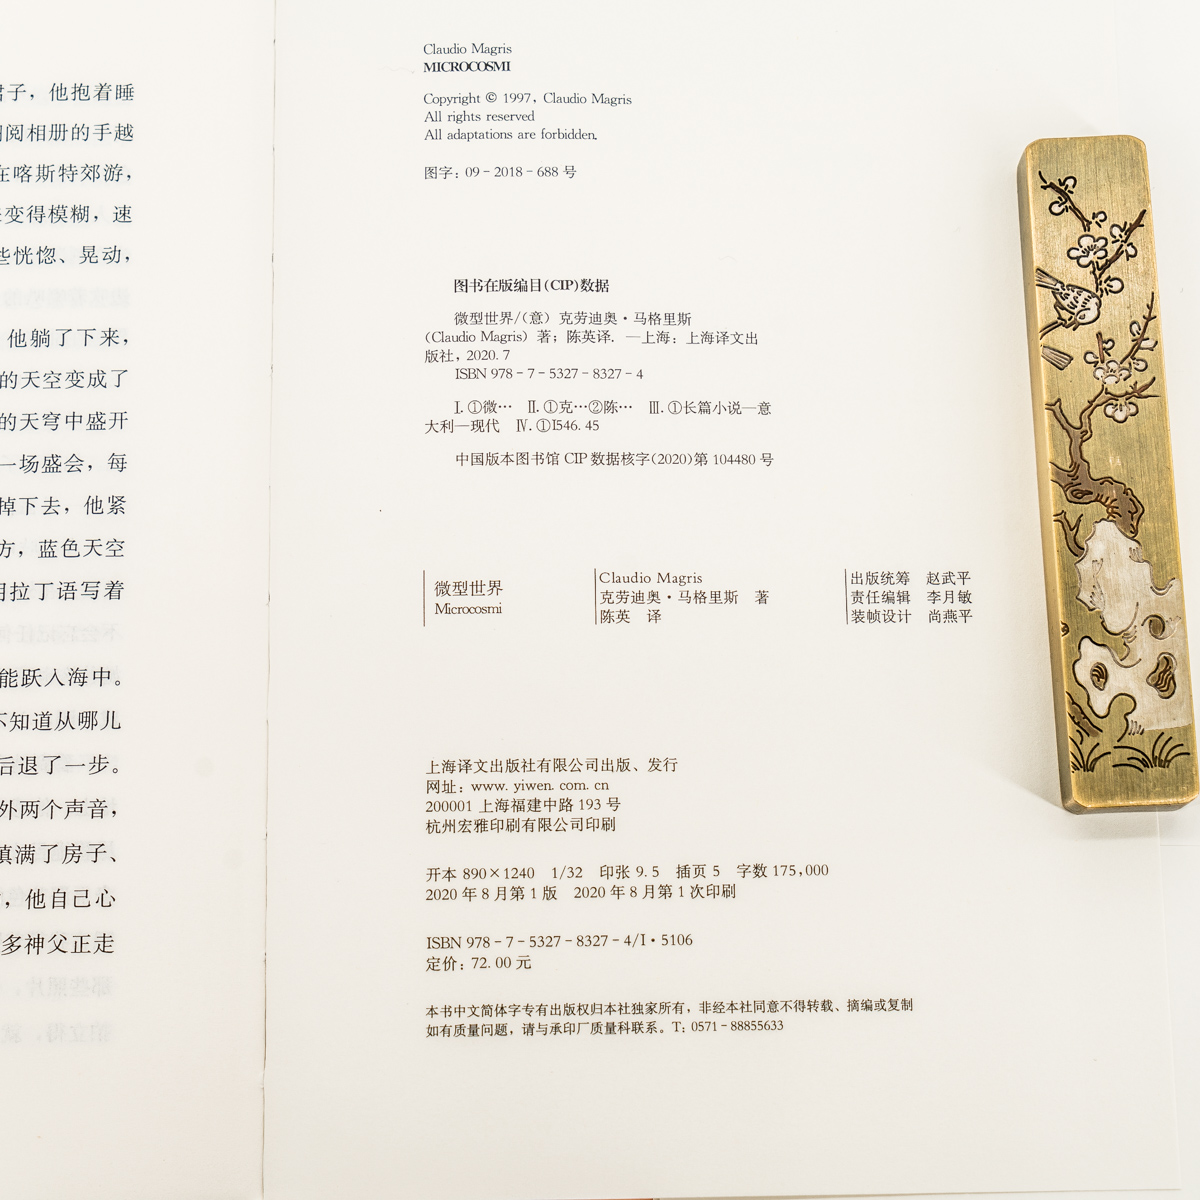 子，他抱着睡
阅相册的手越
在喀斯特郊游，
变得模糊，速
些恍惚、晃动，
他躺了下来，
的天空变成了
的天穹中盛开
一场盛会，每
掉下去，他紧
方，蓝色天空
用拉丁语写着
能跃入海中。
不知道从哪儿
后退了一步。
外两个声音，
填满了房子、
，他自己心
多神父正走
Claudio Magris
MICROCOSMI
Copyright © 1997, Claudio Magris
All rights reserved
All adaptations are forbidden.
图字：09-2018-688号
图书在版编目(CIP)数据
微型世界/(意)克劳迪奥·马格里斯
(Claudio Magris)著；陈英译. —上海：上海译文出
版社，2020.7
ISBN 978-7-5327-8327-4
Ⅰ.①微… Ⅱ.①克…②陈… Ⅲ.①长篇小说—意
大利—现代 Ⅳ.①I546.45
中国版本图书馆CIP数据核字(2020)第104480号
微型世界
Microcosmi
Claudio Magris
克劳迪奥·马格里斯 著
陈英 译
出版统筹 赵武平
责任编辑 李月敏
装帧设计 尚燕平
上海译文出版社有限公司出版、发行
网址：www.yiwen.com.cn
200001 上海福建中路193号
杭州宏雅印刷有限公司印刷
开本890×1240 1/32 印张9.5 插页5 字数175,000
2020年8月第1版 2020年8月第1次印刷
ISBN 978-7-5327-8327-4/I·5106
定价：72.00元
本书中文简体字专有出版权归本社独家所有，非经本社同意不得转载、摘编或复制
如有质量问题，请与承印厂质量科联系。T：0571-88855633